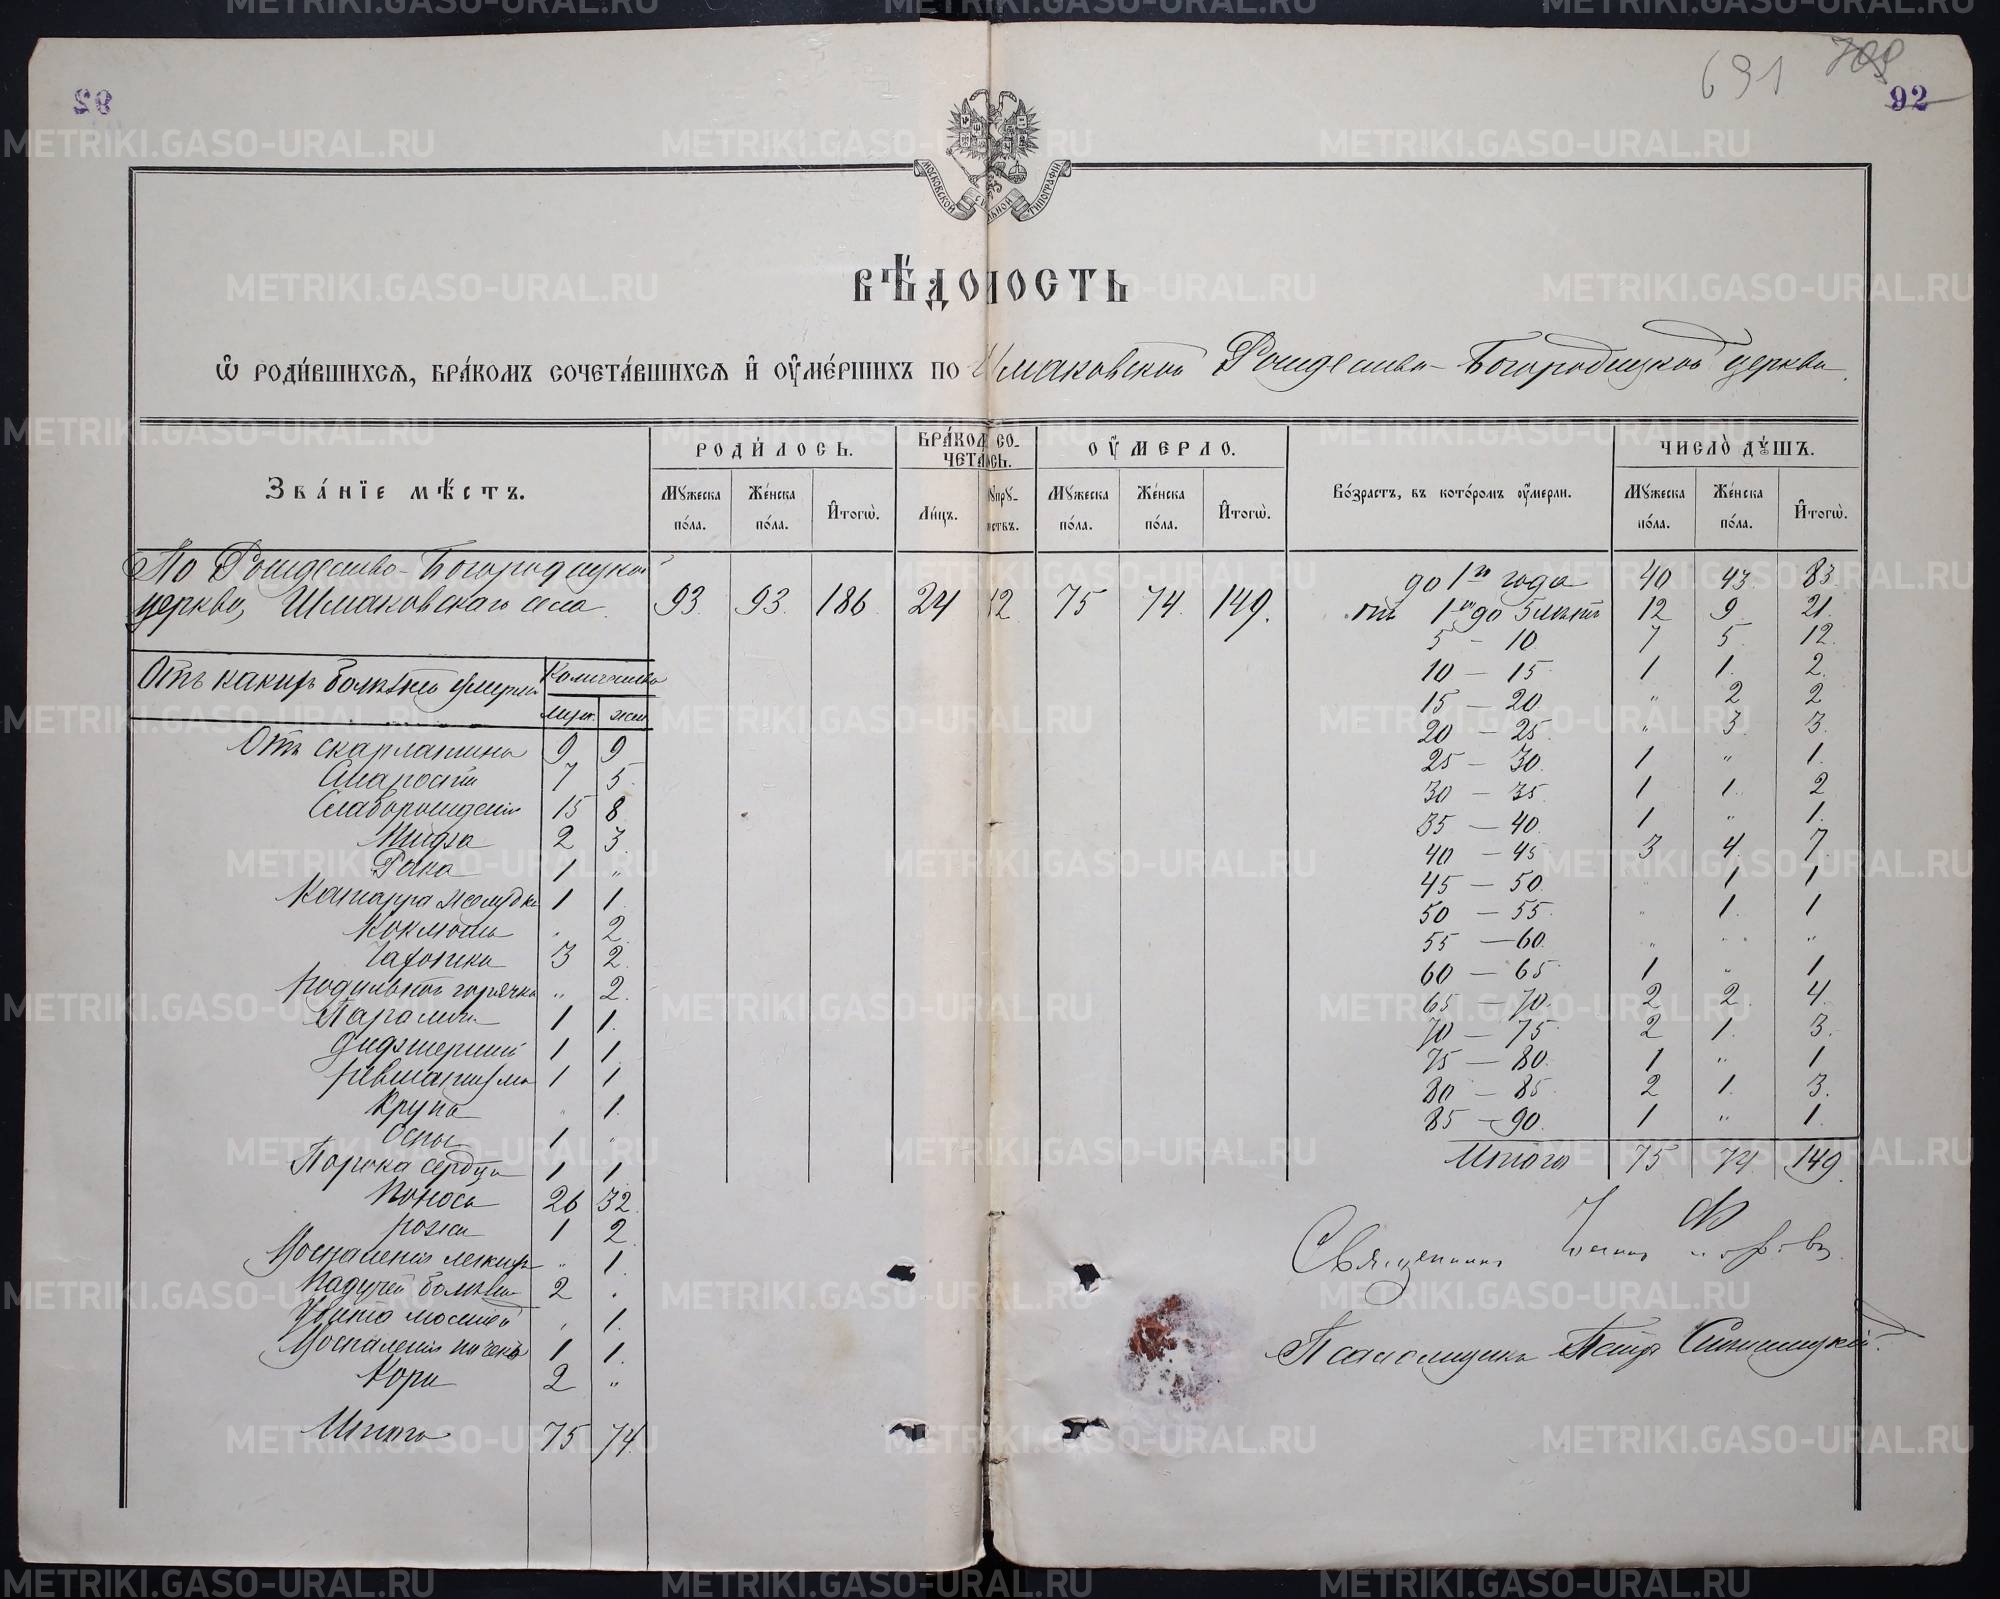 92
691 709
92
МОСКОВСКОЙ СѴНОДАЛЬНОЙ ТИПОГРАФІИ
ВѢДОМОСТЬ
Ѡ РОДИ́ВШИХСѦ, БРА́КОМЪ СОЧЕТА́ВШИХСѦ И҆ ОУ҆МЕ́РШИХЪ ПО Шмаковской Рождество-Богородицкой церкви
ЗВА́НІЕ МѢ́СТЪ.
РОДИ́ЛОСЬ.
БРА́КОМЪ СО-ЧЕТАЛОСЬ.
ОУ҆МЕРЛО.
Во́зрастъ, въ кото́ромъ оу҆мерли.
ЧИСЛО̀ ДꙊШЪ.
Мꙋ́жеска по́ла. Же́нска по́ла. И҆того̀. Ли́цъ. Сꙋпрꙋ-жествъ. Мꙋ́жеска по́ла. Же́нска по́ла. И҆того̀. Мꙋ́жеска по́ла. Же́нска по́ла. И҆того̀.
По Рождество-Богородицкой
церкви, Шмаковскаго села 93. 93. 186 24 12 75 74. 149.
до 1го года 40 43. 83.
отъ 1го до 5 лѣтъ 12 9. 21.
5 – 10. 7 5. 12.
10 – 15. 1 1. 2.
15 – 20 „ 2 2
20 – 25. „ 3. 3.
25 – 30. 1 „ 1.
30 – 35. 1 1. 2
35 – 40. 1 „ 1.
40 – 45 3 4. 7.
45 – 50. „ 1 1
50 – 55. „ 1. 1
55 – 60. „ „ „
60 – 65. 1 „ 1
65 – 70. 2 2. 4.
70 – 75. 2 1. 3.
75 – 80. 1 „ 1
80 – 85. 2 1. 3.
85 – 90. 1 „ 1.
Итого 75 74 149.
Отъ какихъ болѣзней умерли Количество
муж. жен.
Отъ скарлатины 9 9
Старости 7 5.
Слаборожденія 15 8
Тифа 2 3.
Рака 1 „
Катарра желудка 1 1.
Коклюша „ 2
Чахотки 3 2.
Родильной горячки „ 2.
Паралича 1 1.
Дифтерита 1 1.
Ревматизма 1 1
Крупа „ 1.
Оспы 1 „
Порока сердца 1 1.
Поноса 26 32.
Рожи 1 2.
Воспаленія легкихъ „ 1.
Падучей болѣзни 2 „
„ 1.
Воспаленія почекъ 1 1.
Кори 2 „
Итого 75 74.
Священникъ
Псаломщикъ Петръ
METRIKI.GASO-URAL.RU